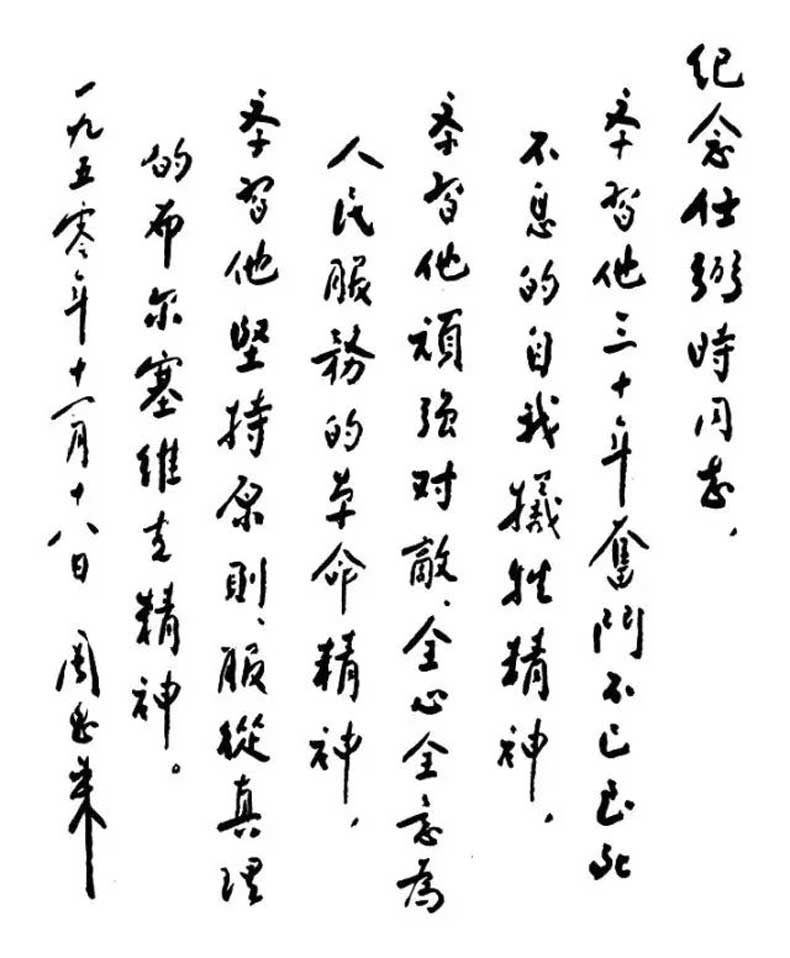 纪念任弼時同志，
学習他三十年奮鬥不已至死
不息的自我犠牲精神，
学習他頑强对敵、全心全意為
人民服務的革命精神，
学習他堅持原則、服從真理
的布尔塞維克精神。
一九五零年十一月十八日 周恩来